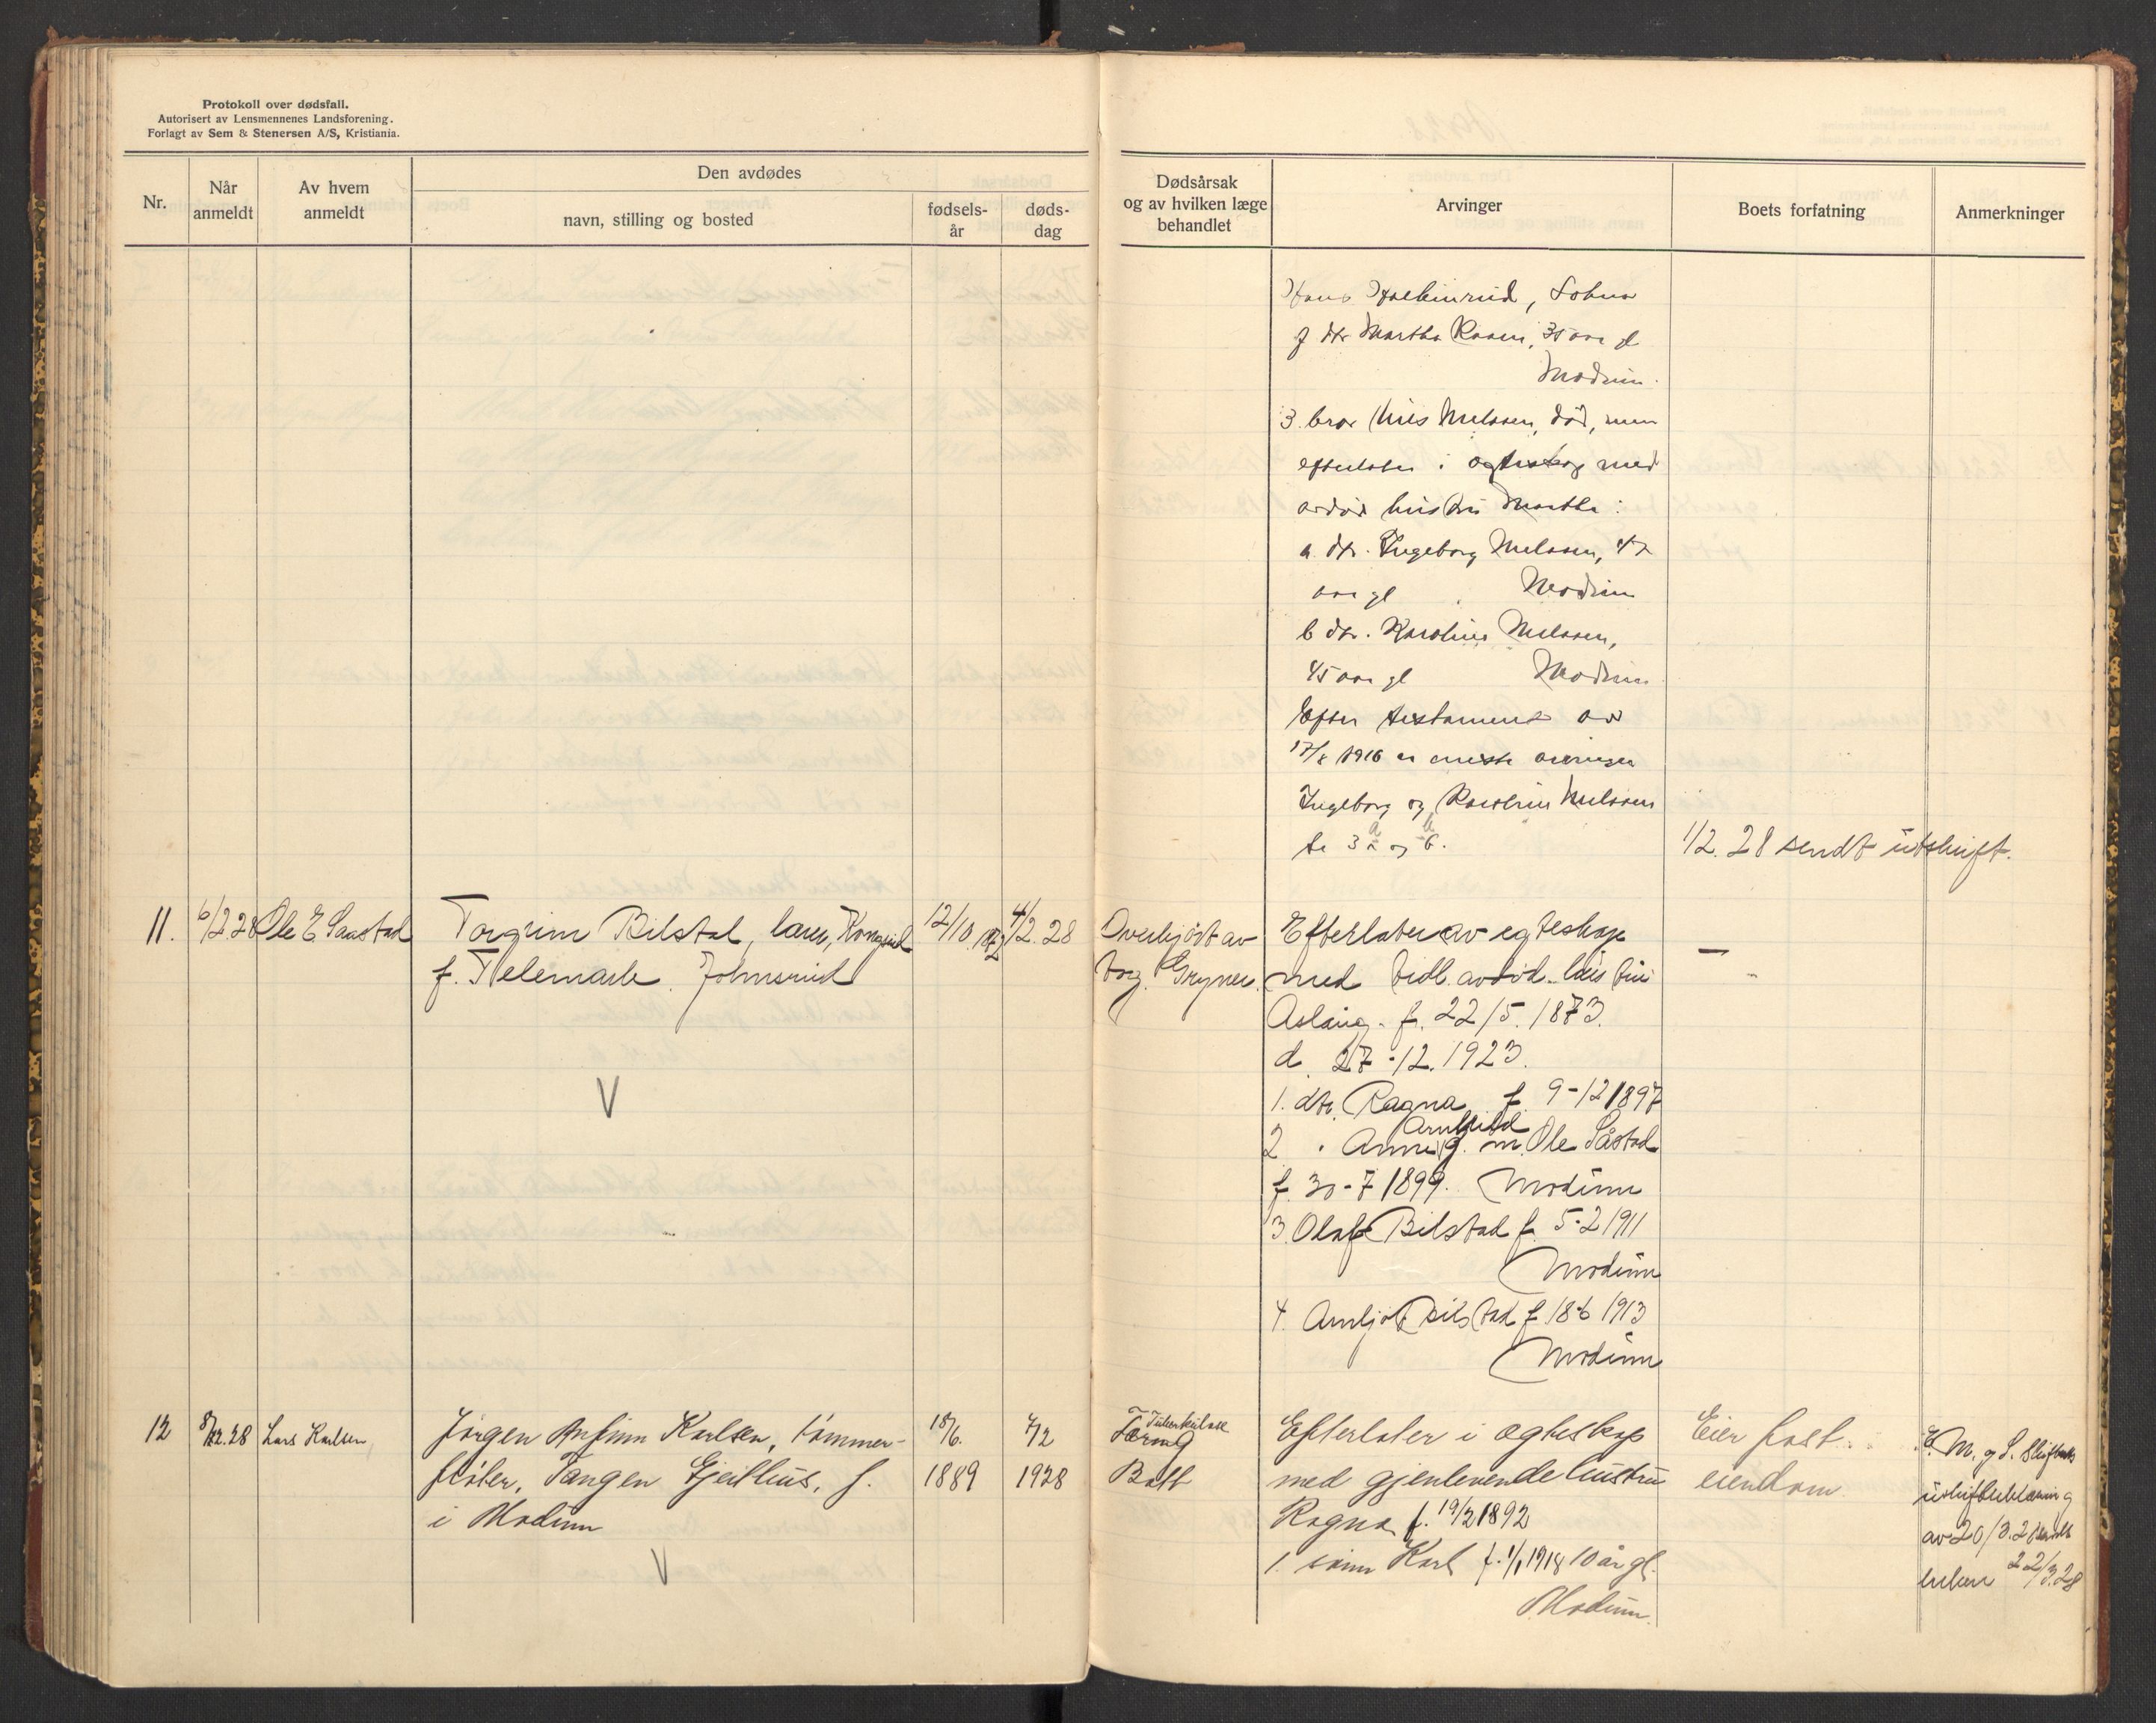 Protokoll over dødsfall.
Autorisert av Lensmennenes Landsforening.
Forlagt av Sem & Stenersen A/S, Kristiania.
Nr.
Når anmeldt
Av hvem anmeldt
Den avdødes
navn, stilling og bosted
fødsels-år
døds-dag
Dødsårsak og av hvilken læge behandlet
Arvinger
Boets forfatning
Anmerkninger
Hans
f dtr Martha 35 aar gl
Modum.
3. bror Nils Nielssen, död, men
efterlater i egteskap med
avdød hustru Martha:
a. dtr. Ingeborg Nielssen, 47
aar gl Modum
b dtr. Karoline Nielssen,
45 aar gl Modum
Efter testament av
17/8 1916 er eneste arvinger
Ingeborg og Karoline Nielssen
se 3 a og b.
1/2.28 sendt utskrift.
11. 6/2.28 Ole E. Saastad Torgrim Bilstad, lærer, Kongsrud 12/10.1872 4/2.28 Overkjört av Efterlater av egteskap —
f. Telemark. Johnsrud tog. Gryner. med tidl. avdöd hustru "
Aslaug. f. 22/5.1873.
d. 27-12.1923.
1. dtr. Ragna f. 9-12 1897
Arnhild
2 " Anne g. m. Ole Såstad
f. 30-7 1899. Modum
3. Olaf Bilstad f. 5-2 1911
Modum
4. Arnljot Bilstad f. 18-6 1913
Modum
V
12 8/2.28 Lars Karlsen Jörgen Anfinn Karlsen, tömmer- 18/6. 7/2 Tuberkulose Efterlater i egteskap Eier fast E. M. og S. skifteretts
Tæring
flöter, Tangen Geithus, f. 1889 1928 Batt med gjenlevende hustru eiendom
i Modum Ragna f. 19/2 1892 av 20/3.28 sendt
1. sönn Karl f. 1/1 1918 10 år gl. enken 22/3.28
Modum.
V